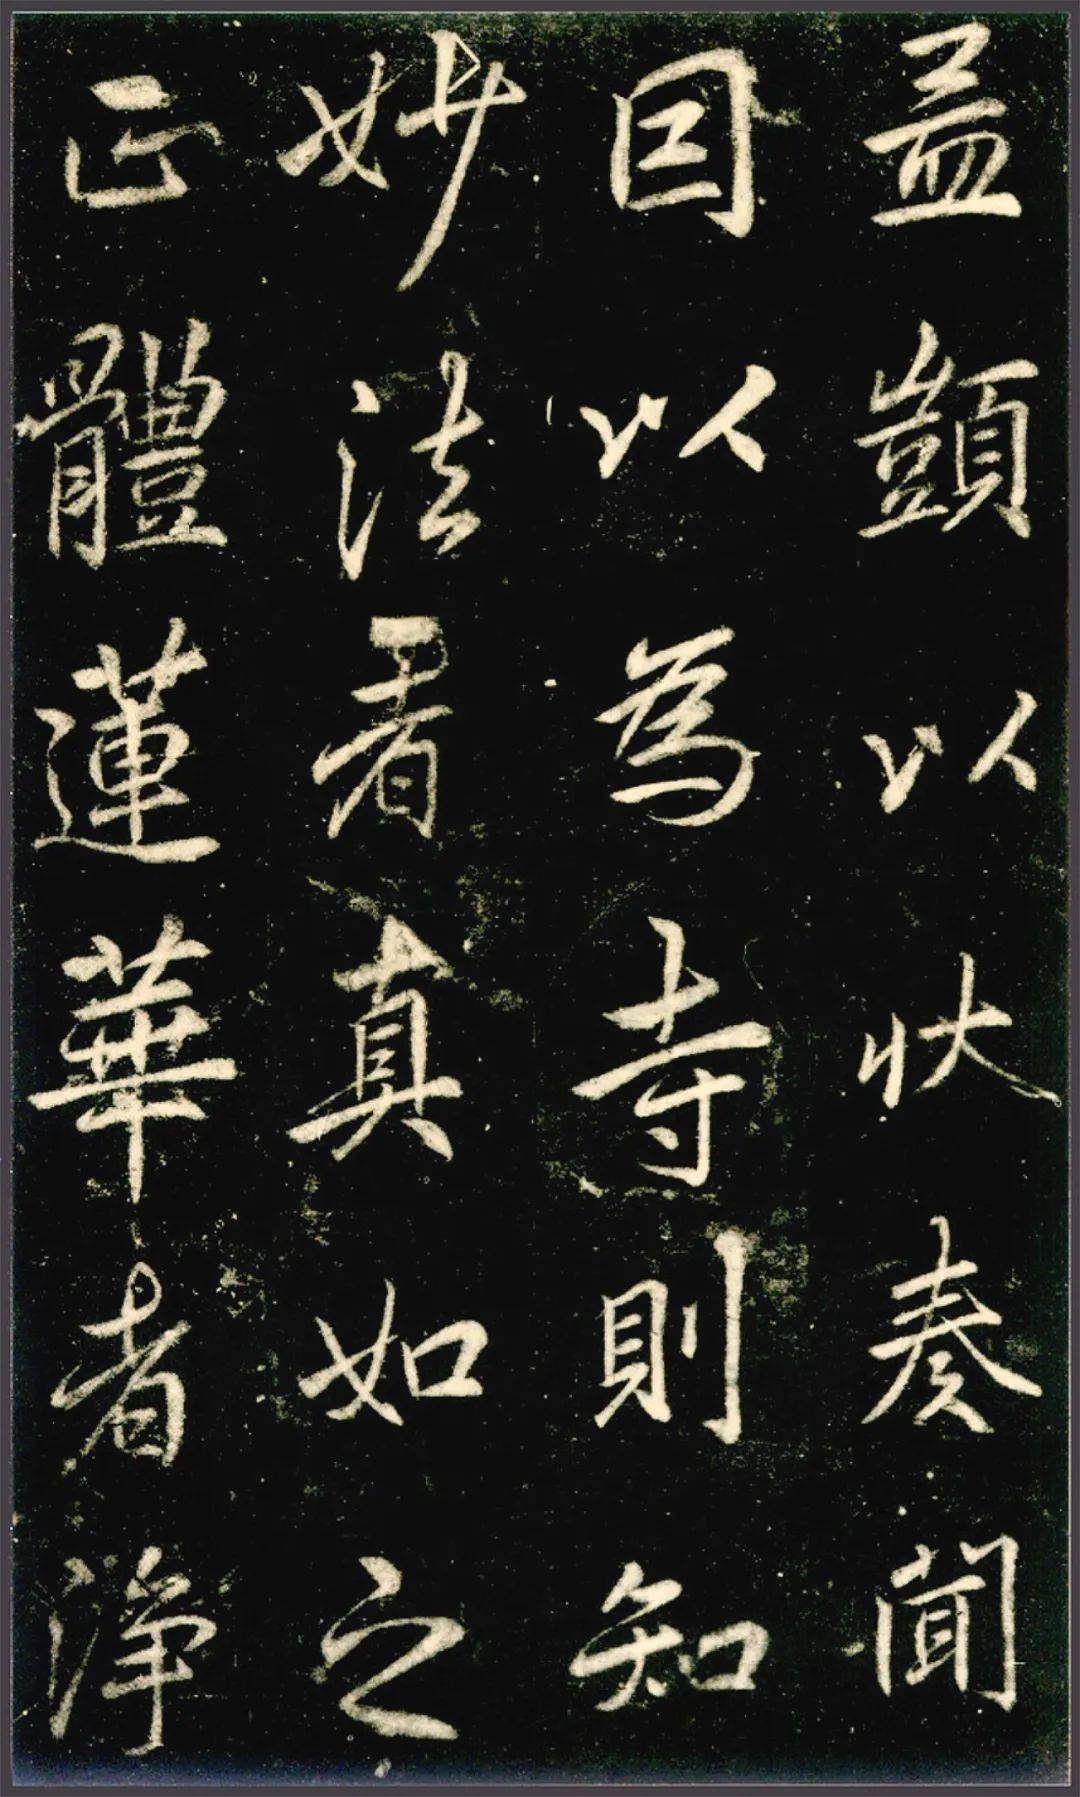 盖顗以狀奏聞
因以為寺則知
妙法者真如之
正體蓮華者淨